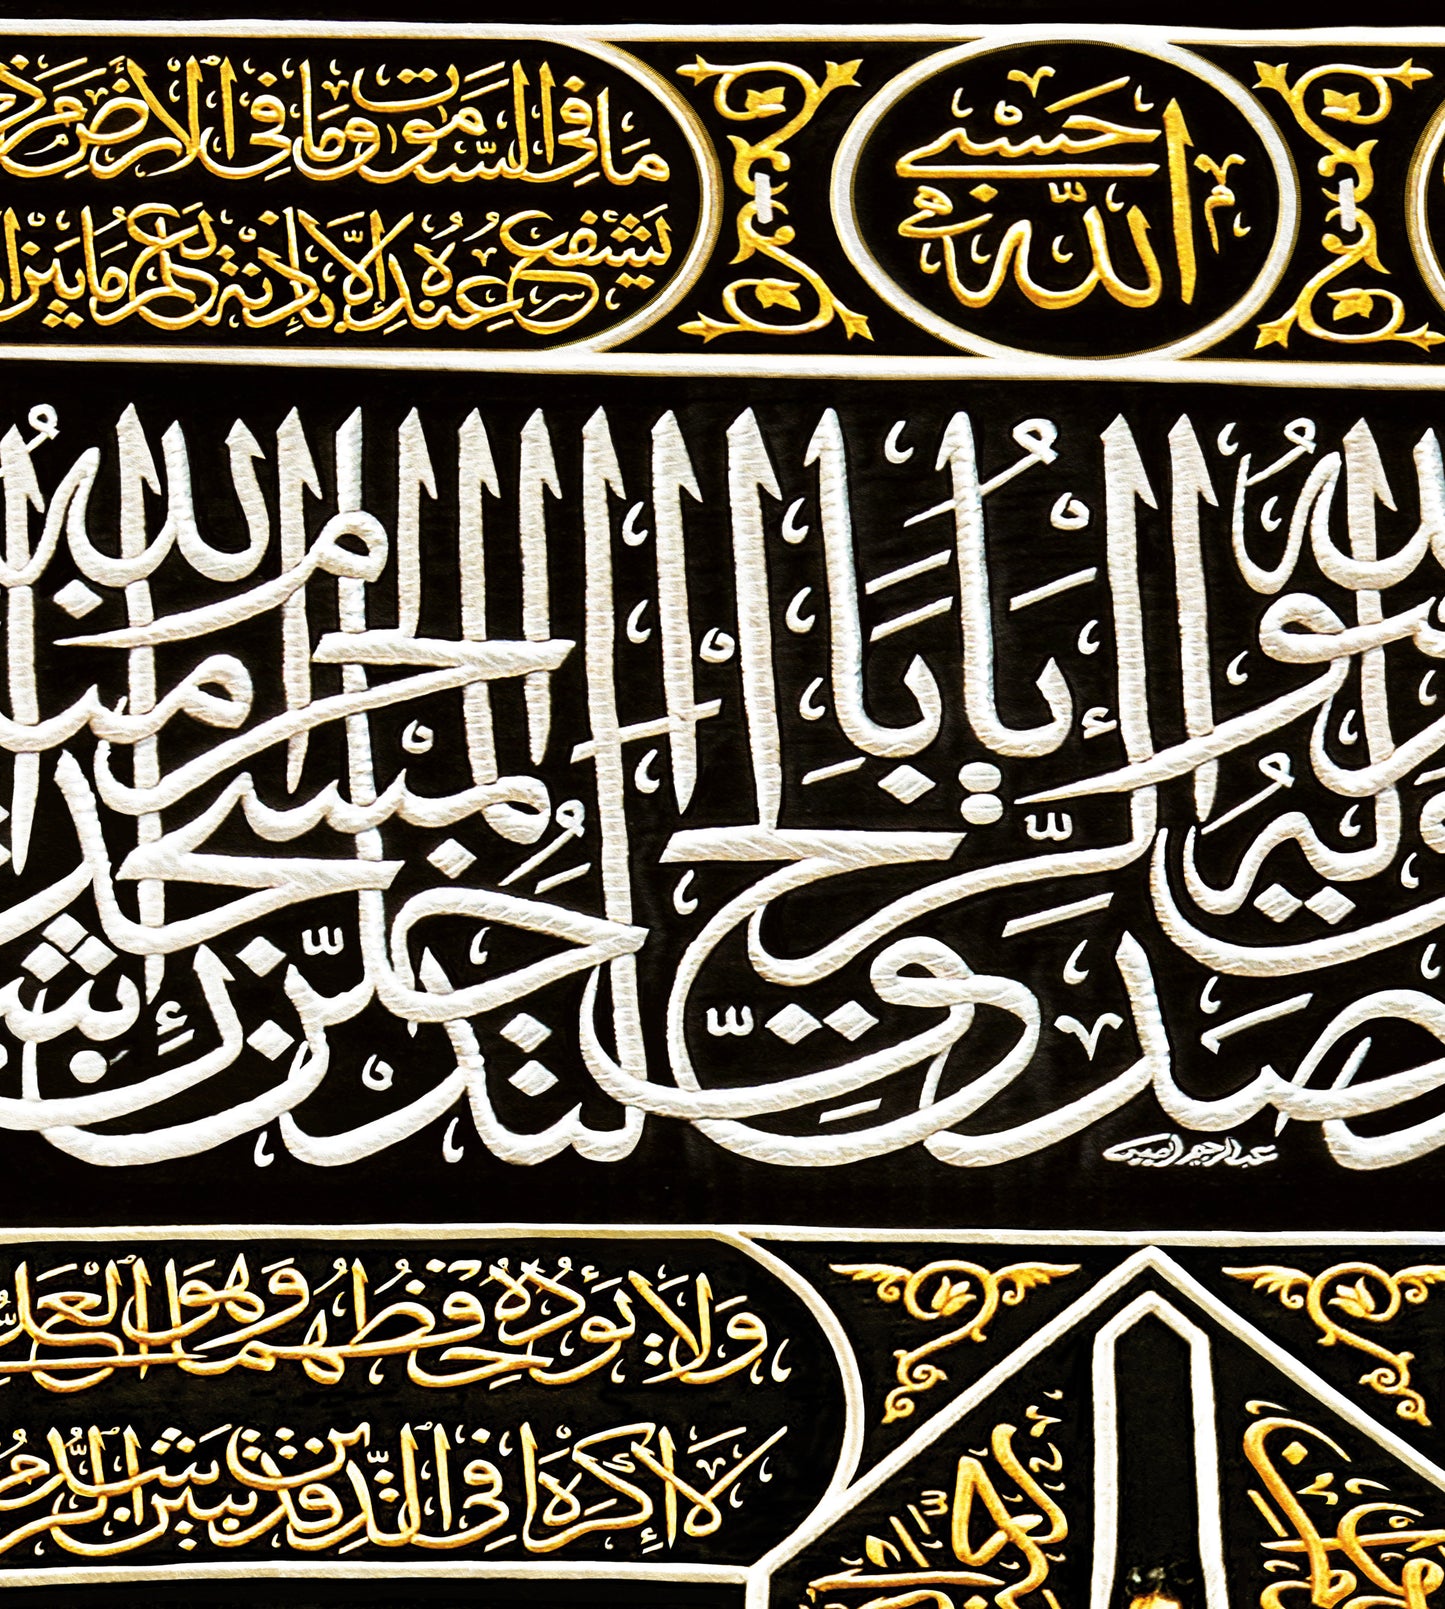 الله حسبي
ما في السموت وما في الأرض من ذ
يشفع عنده إلا بإذنه يعلم ما بين أ
صدق الله رسوله الرءيا بالحق لتدخلن المسجد الحرام إن ش الله ءامنين
عبدالرحيم امين
ولا يؤده حفظهما وهو العلي
لا إكراه في الدين قد تبين الرشد م